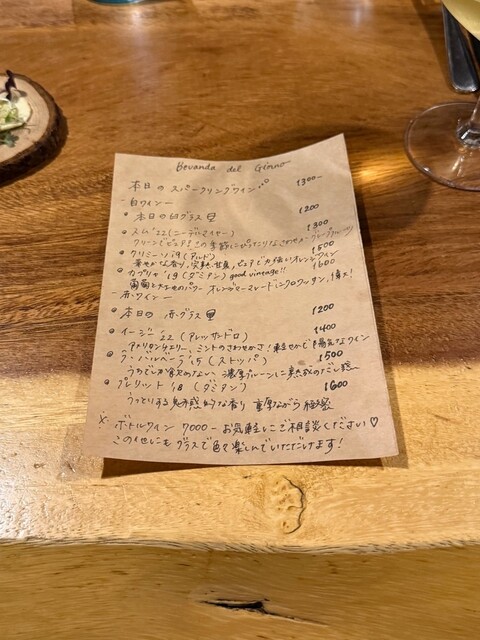 Bevanda del Giorno
本日の スパークリングワイン 1300-
白ワイン
本日の白グラス 1200
スム '22 (ニーデルマイヤー) 1300
クリーンでピュア！この季節にぴったりな
クリミーソ '19 (アルド) 1500
幸せな香り、完熟、ピュアで力強いオレンジワイン
カプリャ '19 (ダミアン) good vintage!! 1600
葡萄と大地のパワー オレンジマーマレードにクロワッサン、偉大！
赤ワイン
本日の 赤グラス 1200
イージー '22 (アレッサンドロ) 1400
アメリカンチェリー、ミントのさわやかさ！軽やかで陽気なワイン
ラ・バルベーラ '15 (ストッパ) 1500
うちでしか飲めない 濃厚プルーンに熟成のだし感
プレリット '18 (ダミアン) 1600
うっとりする魅惑的な香り 重厚ながら
※ ボトルワイン 7000- お気軽にご相談ください♡
この他にも グラスで色々楽しんでいただけます！